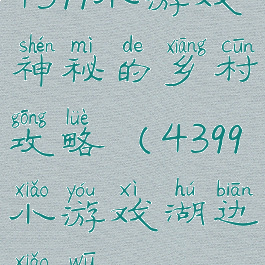 shén mì de xiāng cūn
神秘的乡村
gōng lüè
攻略（4399
xiǎo yóu xì hú biān
小游戏湖边
xiǎo wū